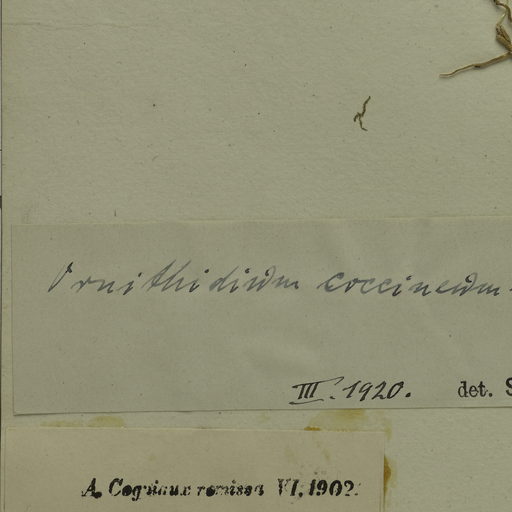 Ornithidium coccineum
III. 1920. det. S
A. Cogniaux remisea VI. 1902.